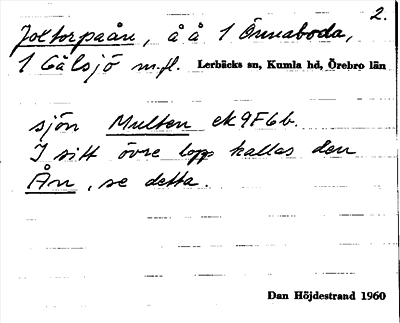 2.
Joltorpaån, å å 1 Önnaboda,
1 Gålsjö m.fl. Lerbäcks sn, Kumla hd, Örebro län
sjön Multen ek 9F6b.
I sitt övre lopp kallas den
Ån, se detta.
Dan Höjdestrand 1960